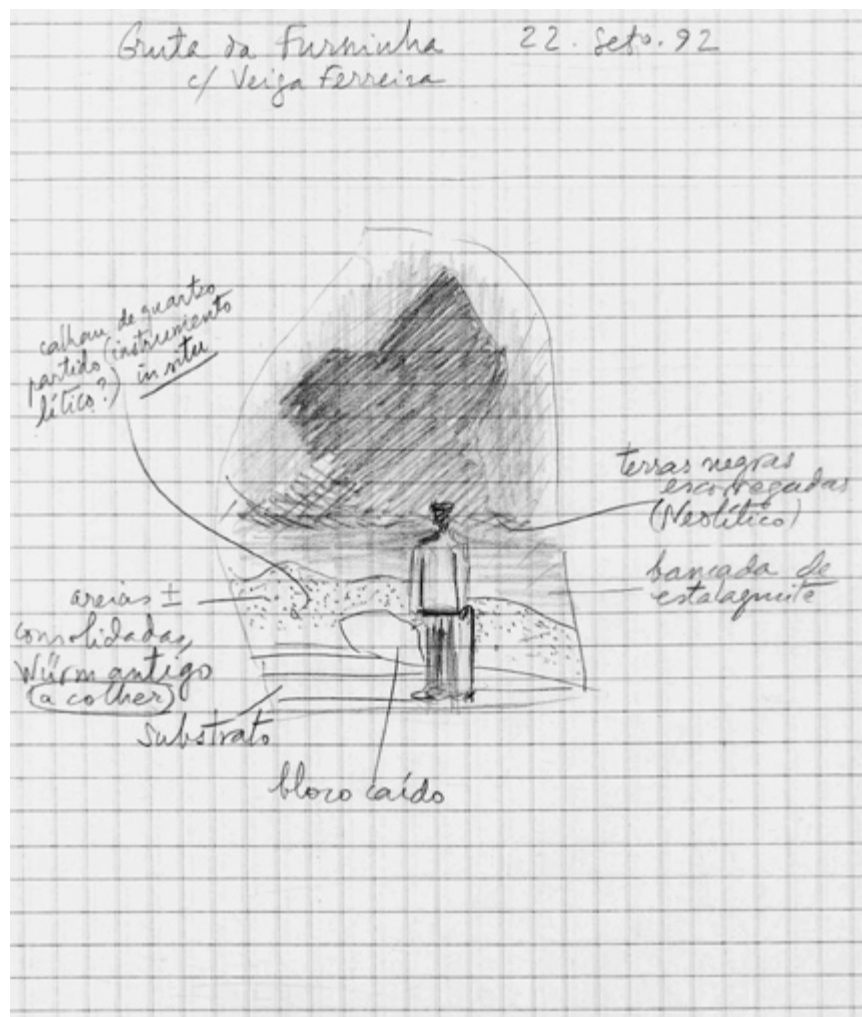 Gruta da Furninha 22. Seto. 92
c/ Veiga Ferreira
calhau de quartzo
partido (instrumento
lítico?) in situ
terras negras
escorregadas
(Neolítico)
bancada de
estalagmite
areias ±
consolidadas,
Würm antigo
(a colher)
Substrato
bloco caído